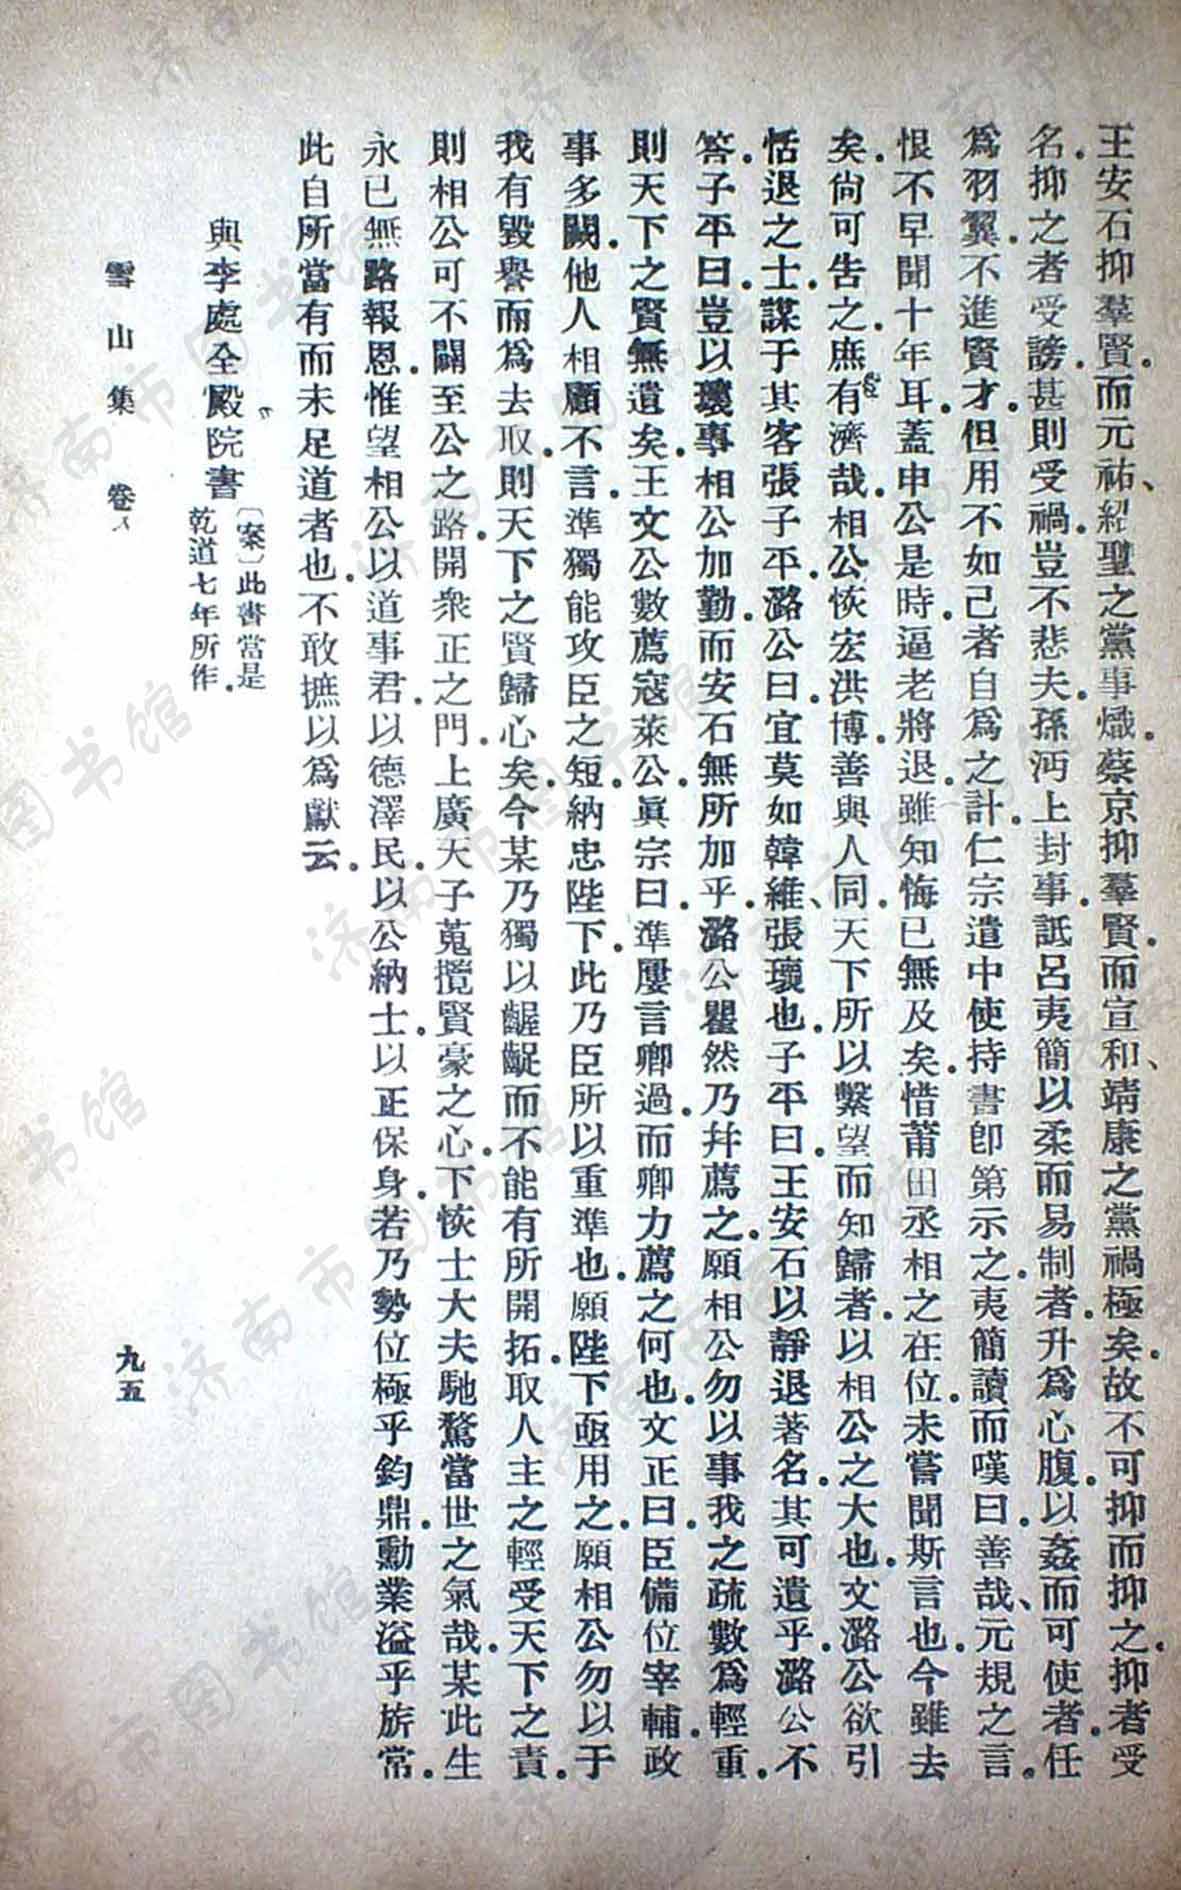 王安石抑羣賢而元祐、紹聖之黨事熾蔡京抑羣賢而宣和、靖康之黨禍極矣故不可抑而抑之抑者受
名抑之者受謗甚則受禍豈不悲夫孫沔上封事詆呂夷簡以柔而易制者升爲心腹以姦而可使者任
爲羽翼不進賢才但用不如己者自爲之計仁宗遣中使持書卽第示之夷簡讀而嘆曰善哉、元規之言
恨不早聞十年耳蓋申公是時逼老將退雖知悔已無及矣惜莆田丞相之在位未嘗聞斯言也今雖去
矣尙可告之庶有濟哉相公恢宏洪博善與人同天下所以繫望而知歸者以相公之大也文潞公欲引
恬退之士謀于其客張子平潞公曰宜莫如韓維、張瓌也子平曰王安石以靜退著名其可遺乎潞公不
答子平曰豈以瓌專相公加勤而安石無所加乎潞公瞿然乃幷薦之願相公勿以事我之疏數爲輕重
則天下之賢無遺矣王文公數薦寇萊公眞宗曰準屢言卿過而卿力薦之何也文正曰臣備位宰輔政
事多闕他人相顧不言準獨能攻臣之短納忠陛下此乃臣所以重準也願陛下亟用之願相公勿以于
我有毀譽而爲去取則天下之賢歸心矣今某乃獨以齷齪而不能有所開拓取人主之輕受天下之責
則相公可不闢至公之路開衆正之門上廣天子蒐攬賢豪之心下恢士大夫馳騖當世之氣哉某此生
永已無路報恩惟望相公以道事君以德澤民以公納士以正保身若乃勢位極乎鈞鼎勳業溢乎旂常
此自所當有而未足道者也不敢摭以爲獻云
與李處全殿院書〔案〕此書當是
乾道七年所作
雪山集 卷八
九五
济南市图书馆